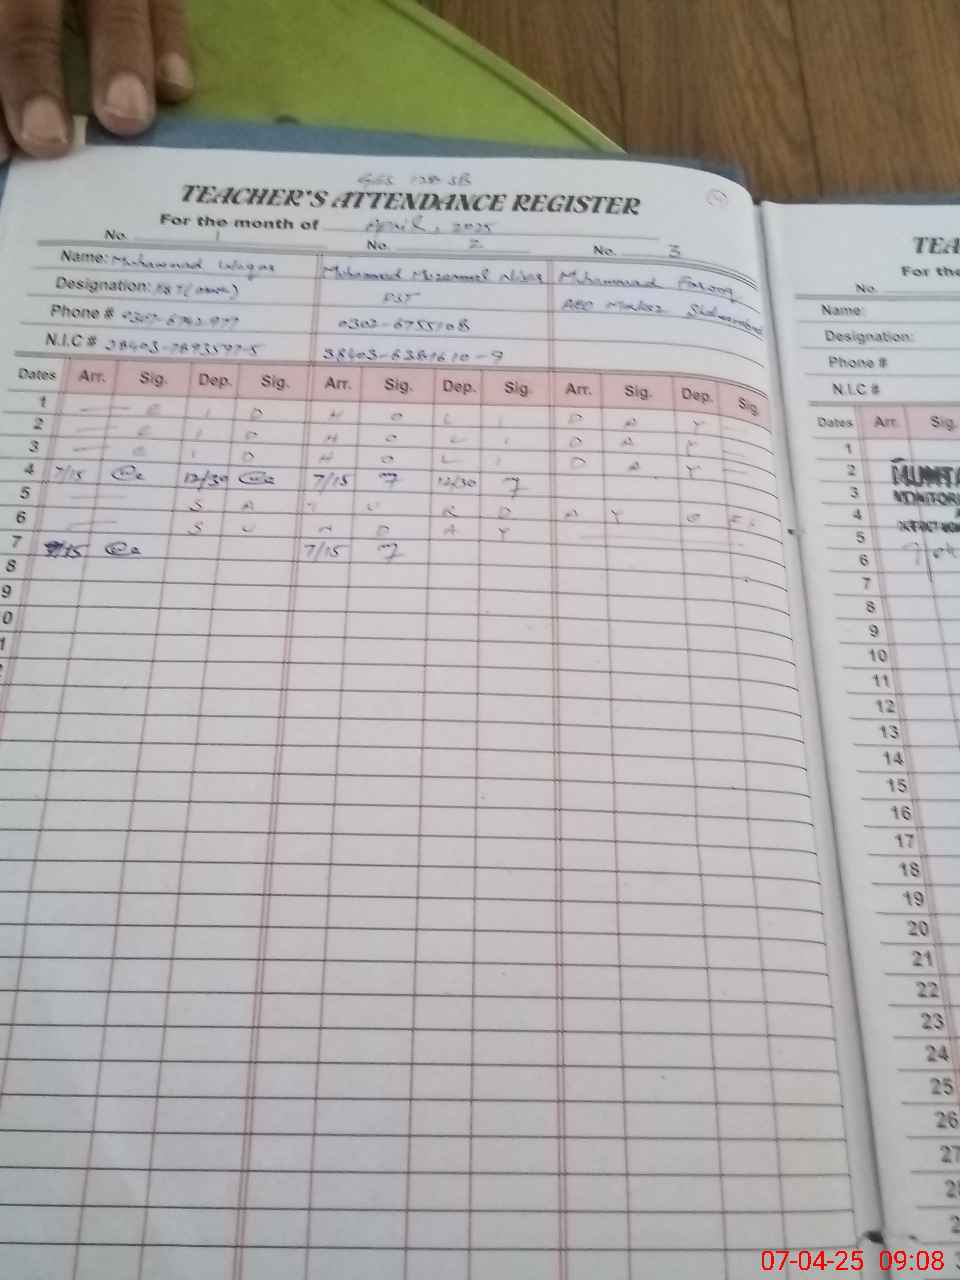 TEACHER'S ATTENDANCE REGISTER
For the month of April, 2025
No. 1 No. 2 No. 3
Name: Muhammad Waqas Muhammad Muzammal Muhammad Farooq
Designation: PST AEO Markaz
Phone # 0302-6755108
N.I.C # 38403-6381610-9
Dates Arr. Sig. Dep. Sig. Arr. Sig. Dep. Sig. Arr. Sig. Dep. Sig.
1 E I D H O L I D A Y
2 E I D H O L I D A Y
3 E I D H O L I D A Y
4 7/15 12/30 7/15 12/30
5 S A T U R D A Y O F F
6 S U N D A Y
7 7/15 7/15
8
9
0
1
TEA
For the
No.
Name:
Designation:
Phone #
N.I.C #
Dates Arr. Sig.
1
2 MUMTA
3 MONITORI
4
5
6
7
8
9
10
11
12
13
14
15
16
17
18
19
20
21
22
23
24
25
26
27
2
2
3
07-04-25 09:08